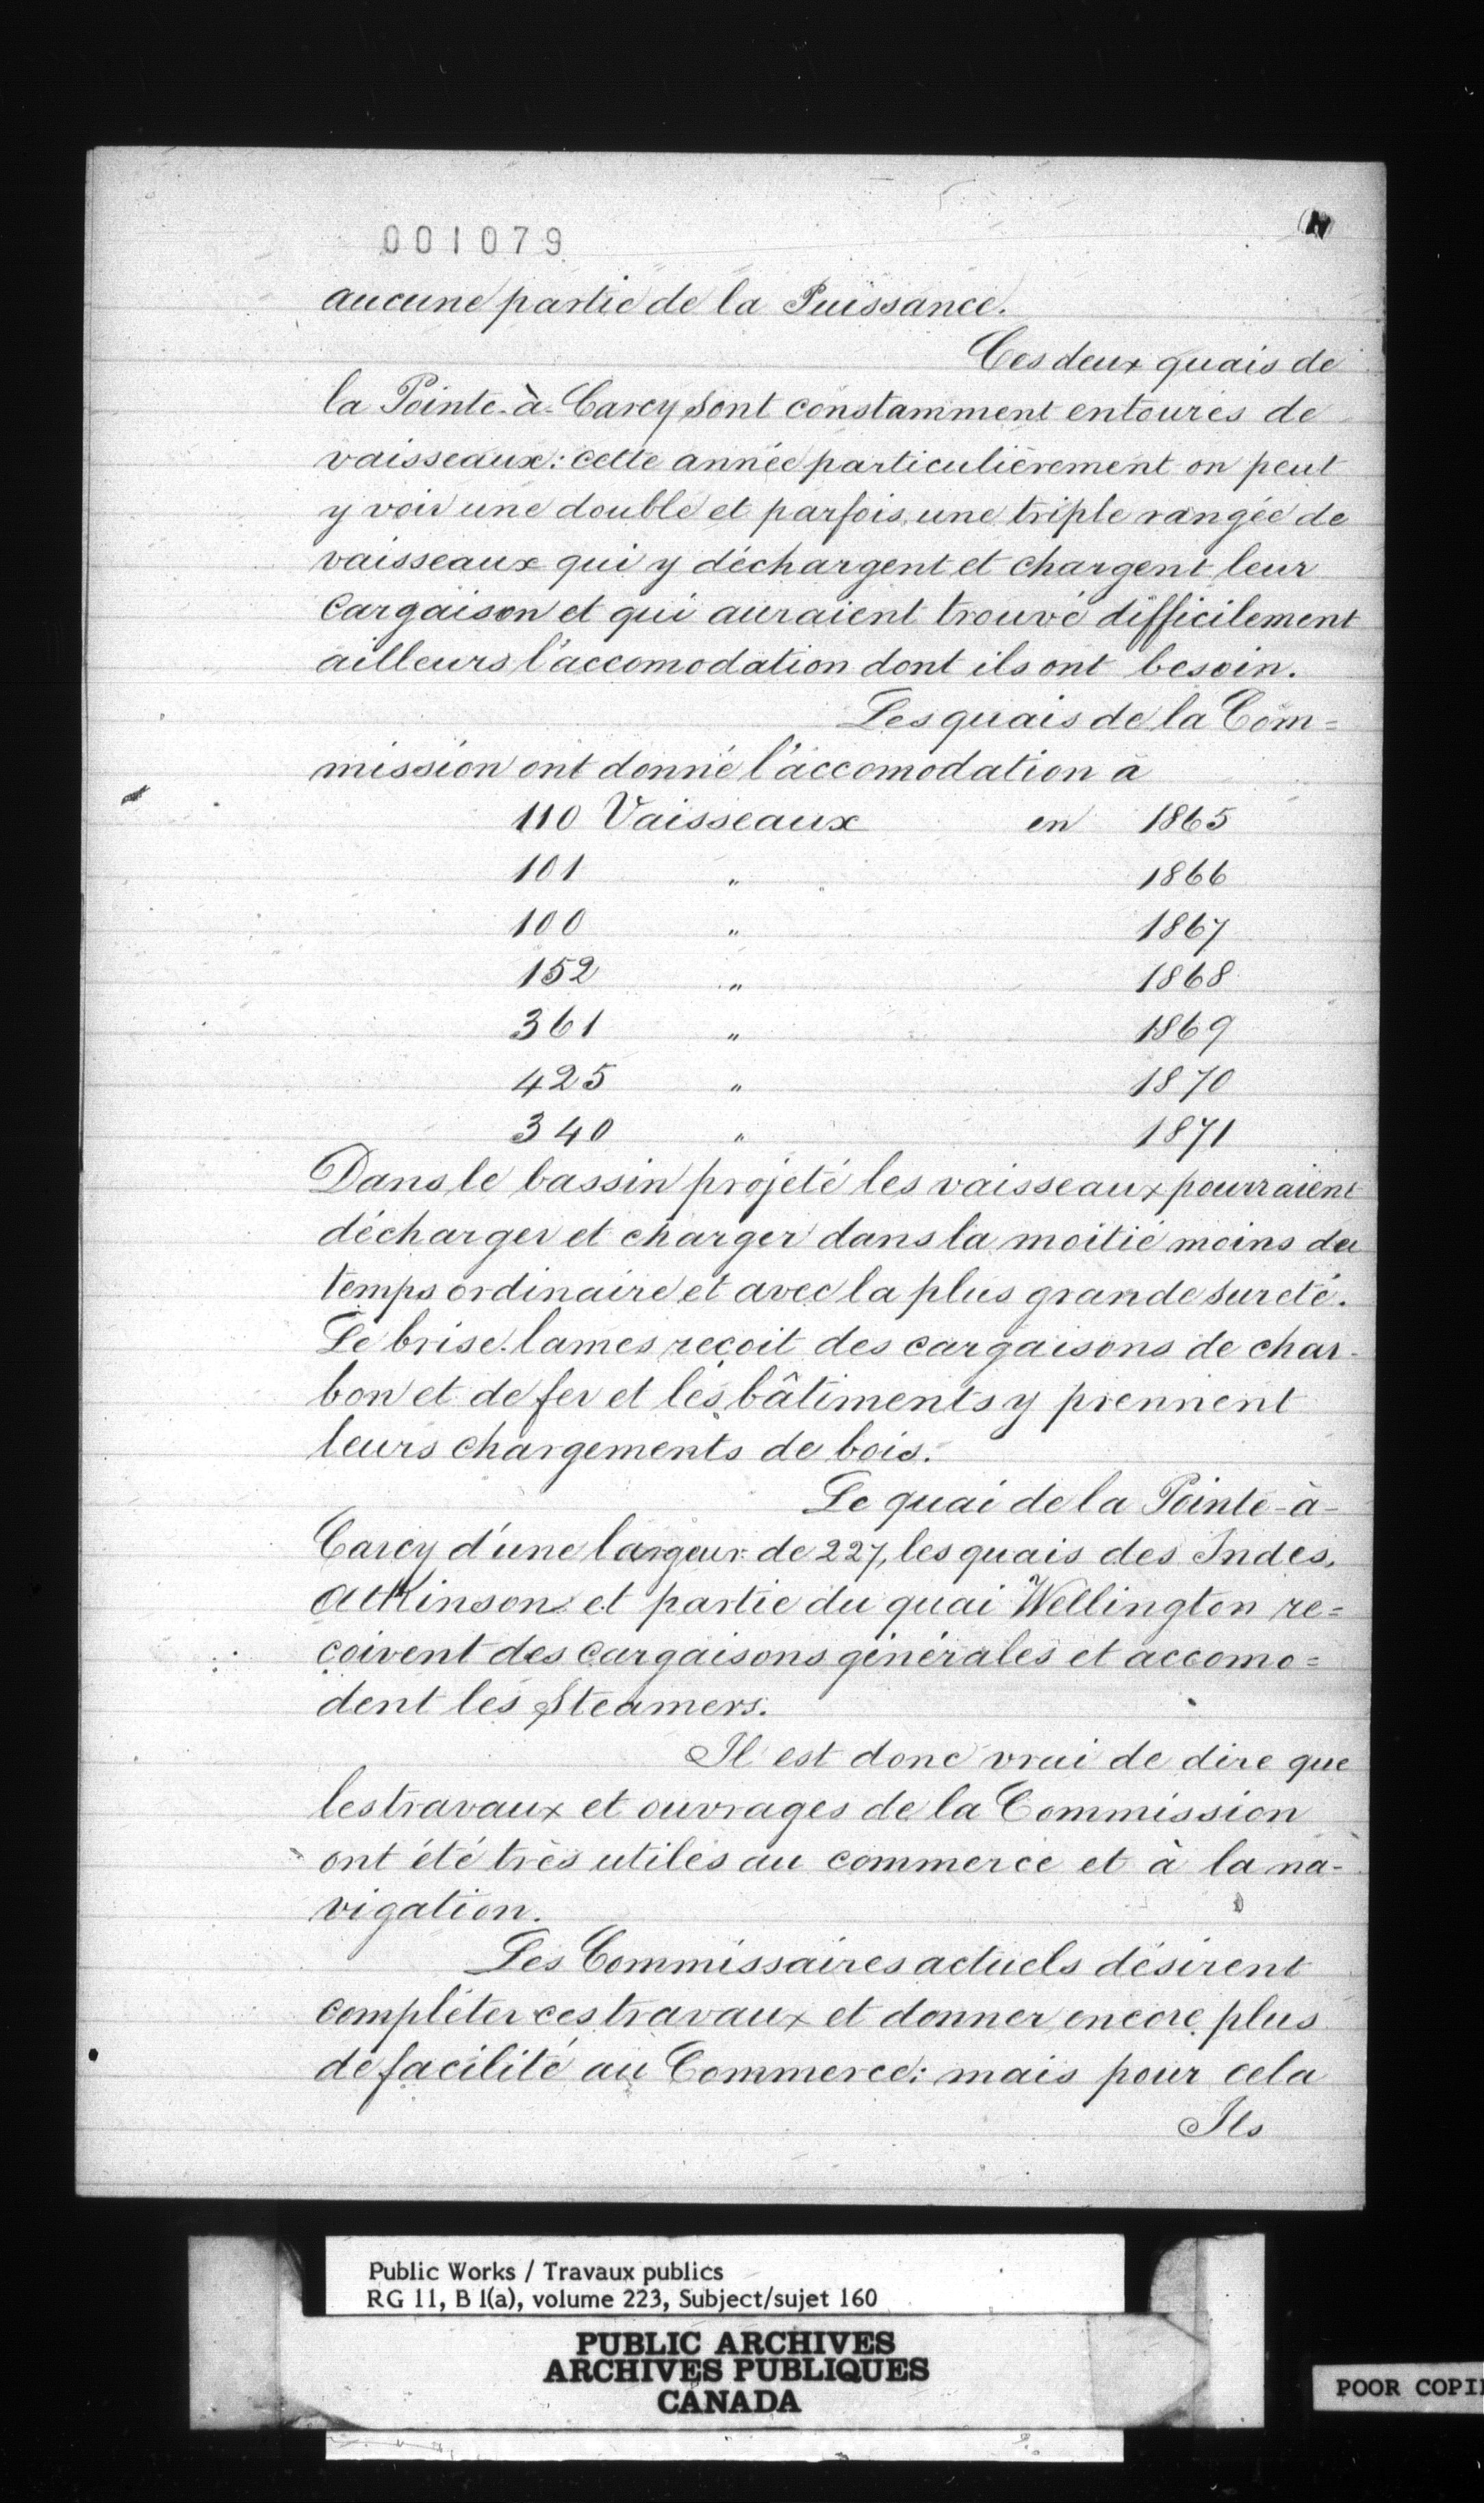 001079
aucune partie de la Puissance.
Ces deux quais de
la Pointe-à-Carcy sont constamment entourés de
vaisseaux: cette année particulièrement on peut
y voir une double et parfois une triple rangée de
vaisseaux qui y déchargent et chargent leur
cargaison et qui auraient trouvé difficilement
ailleurs l'accomodation dont ils ont besoin.
Les quais de la Com=
mission ont donné l'accomodation à
110 Vaisseaux en 1865
101 " 1866
100 " 1867
152 " 1868
361 " 1869
425 " 1870
340 " 1871
Dans le bassin projeté les vaisseaux pourraient
décharger et charger dans la moitié moins du
temps ordinaire et avec la plus grande sureté.
Le brise-lames reçoit des cargaisons de char-
bon et de fer et les bâtiments y prennent
leurs chargements de bois.
Le quai de la Pointe-à-
Carcy d'une largeur de 227, les quais des Indes,
Atkinson et partie du quai Wellington re=
çoivent des cargaisons générales et accomo=
dent les Steamers.
Il est donc vrai de dire que
les travaux et ouvrages de la Commission
ont été très utiles au commerce et à la na-
vigation.
Les Commissaires actuels désirent
compléter ces travaux et donner encore plus
de facilité au Commerce: mais pour cela
Ils
Public Works / Travaux publics
RG 11, B 1(a), volume 223, Subject/sujet 160
PUBLIC ARCHIVES
ARCHIVES PUBLIQUES
CANADA
POOR COPI